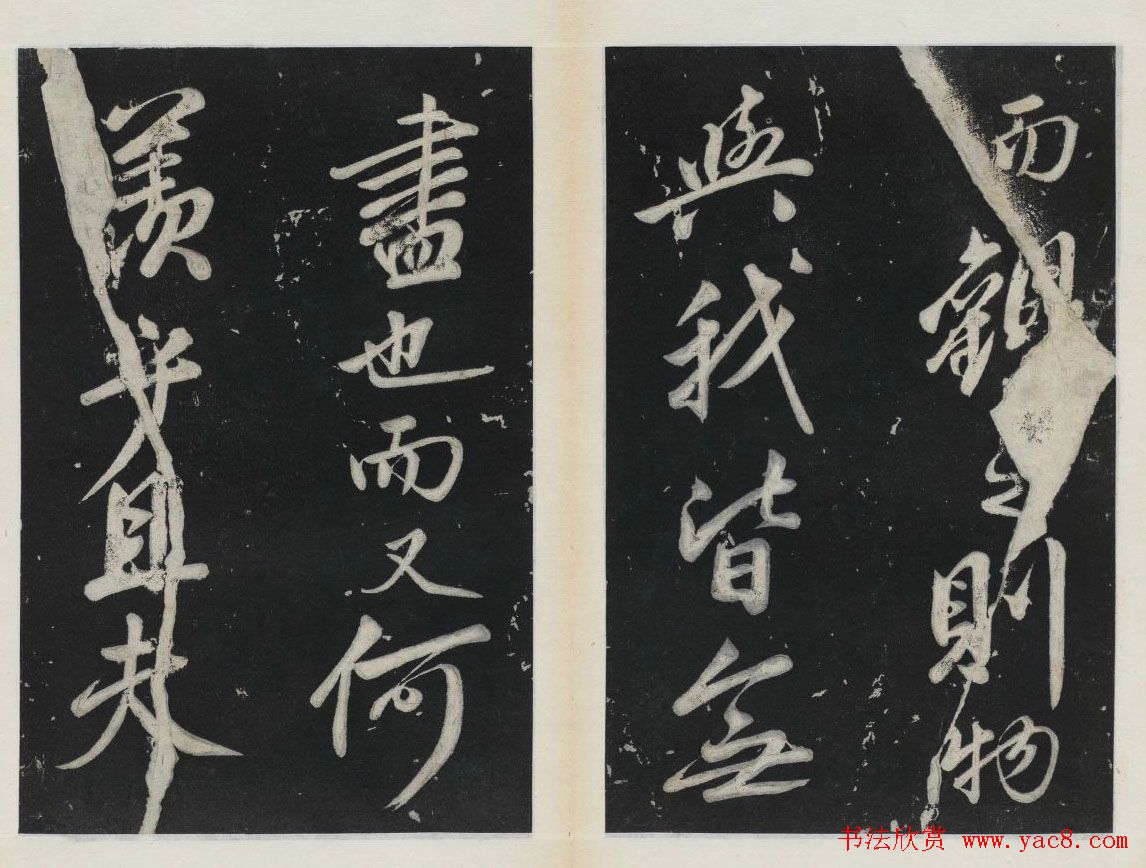 而觀之則物
與我皆無
盡也而又何
羨乎且夫
书法欣赏 www.yac8.com